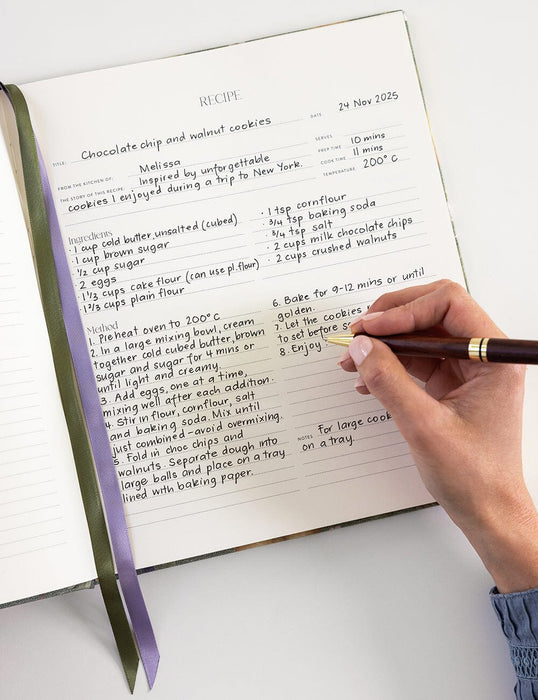 RECIPE
DATE 24 Nov 2025
TITLE: Chocolate chip and walnut cookies
FROM THE KITCHEN OF: Melissa
THE STORY OF THIS RECIPE: Inspired by unforgettable
cookies I enjoyed during a trip to New York.
SERVES
PREP TIME 10 mins
COOK TIME 11 mins
TEMPERATURE 200°C
Ingredients
· 1 cup cold butter, unsalted (cubed)
· 1 cup brown sugar
· 1/2 cup sugar
· 2 eggs
· 1 1/3 cups cake flour (can use pl. flour)
· 1 2/3 cups plain flour
· 1 tsp cornflour
· 3/4 tsp baking soda
· 3/4 tsp salt
· 2 cups milk chocolate chips
· 2 cups crushed walnuts
Method
1. Preheat oven to 200°C
2. In a large mixing bowl, cream
together cold cubed butter, brown
sugar and sugar for 4 mins or
until light and creamy.
3. Add eggs, one at a time,
mixing well after each addition.
4. Stir in flour, cornflour, salt
and baking soda. Mix until
just combined - avoid overmixing.
5. Fold in choc chips and
walnuts. Separate dough into
large balls and place on a tray
lined with baking paper.
6. Bake for 9-12 mins or until
golden.
7. Let the cookies
to set before
8. Enjoy!
NOTES For large
on a tray.